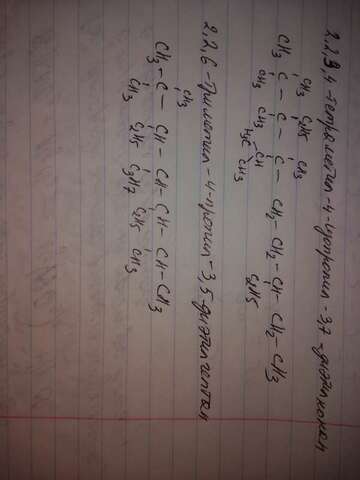 2,2,3,4-тетраметил-4-изопропил-3,7-диэтилнонан
CH3 C2H5 CH3
CH3 C – C – C – CH2 – CH2 – CH – CH2 – CH3
CH3 CH3 CH C2H5
H3C CH3
2,2,6-Триметил-4-пропил-3,5-диэтилгептан
CH3
CH3 – C – CH – CH – CH – CH – CH3
CH3 C2H5 C3H7 C2H5 CH3